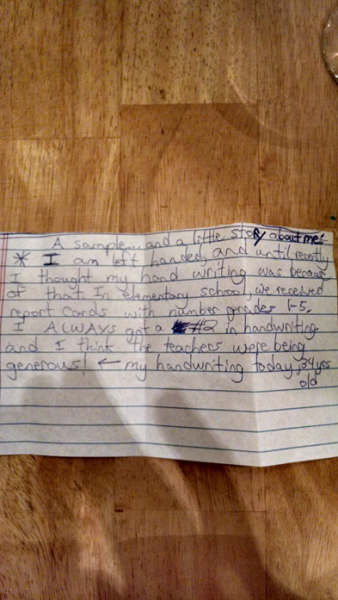 A sample... and a little story about me:
* I am left handed, and until recently
I thought my hand writing was because
of that. In elementary school, we received
report cards with number grades 1-5.
I ALWAYS got a #2 in handwriting
and I think the teachers were being
generous! ← my handwriting today, 34 yrs
old